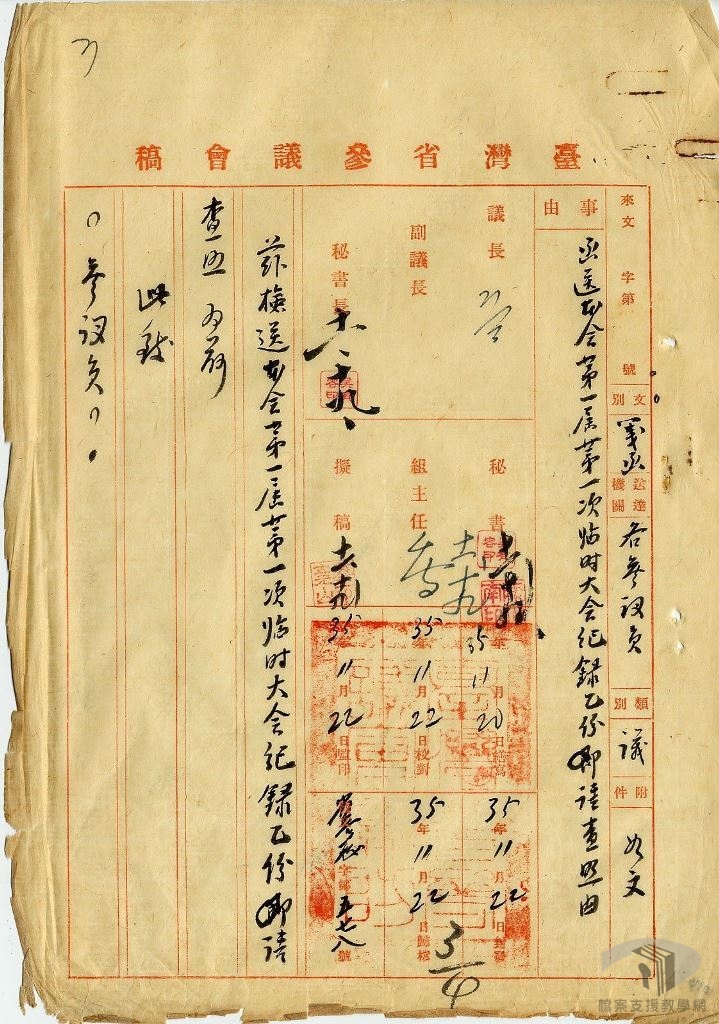 臺灣省參議會稿
來文 字第 號
文別 箋函
送達機關 各參議員
類別 議
附件 如文
事由
函送本會第一屆第一次臨時大會紀錄乙份即請查照由
議長
副議長
秘書長 十一、十九、
秘書
組主任
擬稿 十一、十九
35年11月20日繕寫
35年11月22日校對
35年11月22日監印
35年11月22日封發
35年11月22日歸檔
字第五七八號
茲檢送本會第一屆第一次臨時大會紀錄乙份即請
查照為荷
此致
○參議員○○
3/4
檔案支援教學網